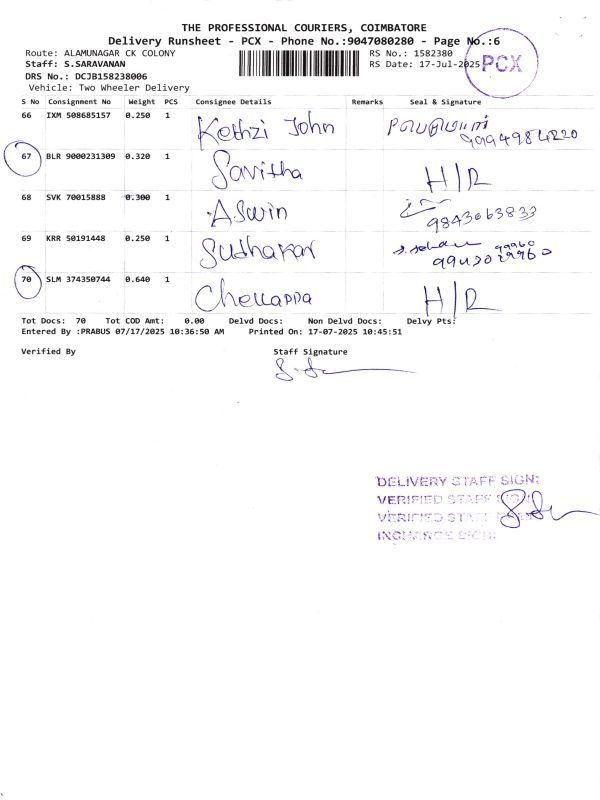 THE PROFESSIONAL COURIERS, COIMBATORE
Delivery Runsheet - PCX - Phone No.:9047080280 - Page No.:6
Route: ALAMUNAGAR CK COLONY RS No.: 1582380
Staff: S.SARAVANAN RS Date: 17-Jul-2025
PCX
DRS No.: DCJB158238006
Vehicle: Two Wheeler Delivery
S No Consignment No Weight PCS Consignee Details Remarks Seal & Signature
66 IXM 508685157 0.250 1 Kethzi John
9994984220
67 BLR 9000231309 0.320 1 Savitha H/R
68 SVK 70015888 0.300 1 Aswin
9843063833
69 KRR 50191448 0.250 1 Sudhakar
70 SLM 374350744 0.640 1 Chellappa H/R
Tot Docs: 70 Tot COD Amt: 0.00 Delvd Docs: Non Delvd Docs: Delvy Pts:
Entered By :PRABUS 07/17/2025 10:36:50 AM Printed On: 17-07-2025 10:45:51
Verified By Staff Signature
DELIVERY STAFF SIGN:
VERIFIED STAFF SIGN:
VERIFIED STAFF
INCHARGE SIGN: